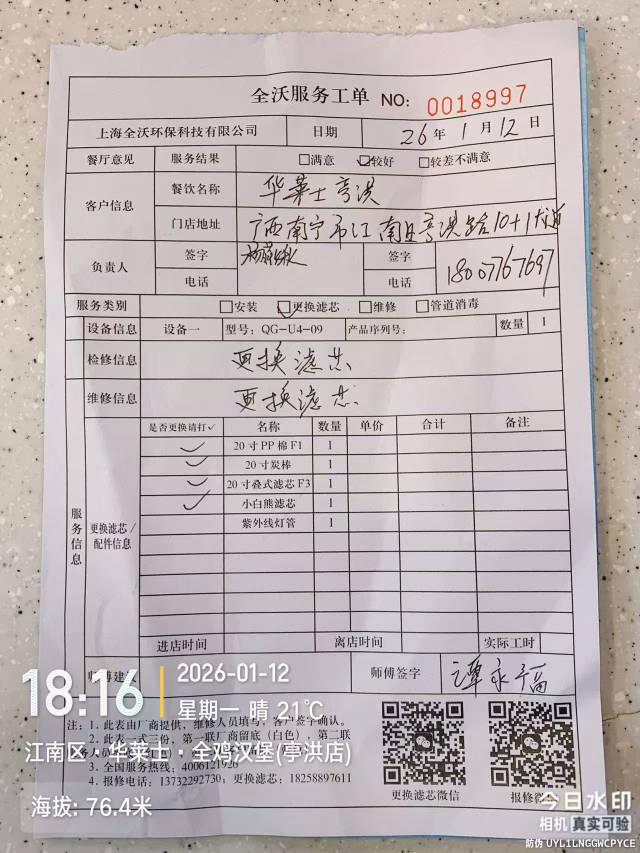 全沃服务工单 NO: 0018997
上海全沃环保科技有限公司 日期 26年1月12日
餐厅意见 服务结果 □满意 ☑较好 □较差不满意
客户信息 餐饮名称 华莱士亭洪
门店地址 广西南宁市江南区亭洪路10+1大道
负责人 签字 签字
电话 电话 18007767697
服务类别 □安装 ☑更换滤芯 □维修 □管道消毒
设备信息 设备一 型号: QG-U4-09 产品序列号: 数量 1
检修信息 更换滤芯
维修信息 更换滤芯
服务信息
更换滤芯/配件信息
是否更换请打✓ 名称 数量 单价 合计 备注
✓ 20寸PP棉F1 1
✓ 20寸炭棒 1
✓ 20寸叠式滤芯F3 1
✓ 小白熊滤芯 1
紫外线灯管 1
进店时间 离店时间 实际工时
师傅建议 师傅签字 谭永福
注: 1.此表由厂商提供, 维修人员填写, 客户签字确认。
2.此表一式三份, 第一联厂商留底(白色), 第二联
3.全国服务热线: 4006121926
4.报修电话: 13732292730; 更换滤芯: 18258897611
更换滤芯微信 报修微
18:16 2026-01-12
星期一 晴 21℃
江南区·华莱士·全鸡汉堡(亭洪店)
海拔: 76.4米
今日水印
相机 真实可验
防伪 UYL1LNGGWCPYCE